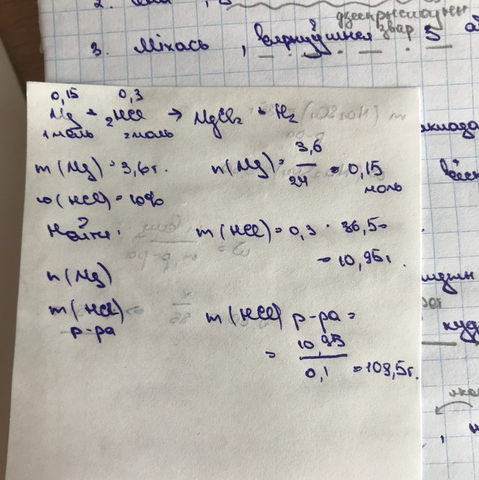 2.
дзеепрыслоўн
звар
3. Міхась , вярнуўшися 5
0,15 0,3
Mg + 2HCl → MgCl₂ + H₂
1 моль 2 моль
m (Mg) = 3,6 г. n (Mg) = 3,6 / 24 = 0,15 моль
ω (HCl) = 10%
Найти: m (HCl) = 0,3 · 36,5 =
= 10,95 г.
n (Mg)
m (HCl) р-ра
m (HCl) р-ра =
= 10,95 / 0,1 = 109,5 г.